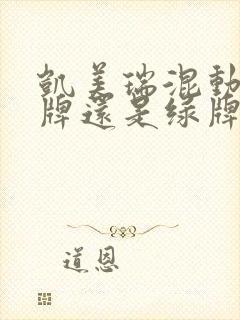 凯美瑞混動
牌還是绿牌
道恩